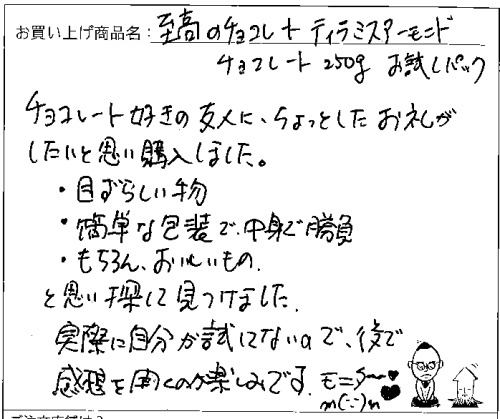 お買い上げ商品名：至高のチョコレート ティラミスアーモンド
チョコレート 250g お試しパック
チョコレート好きの友人に、ちょっとしたお礼が
したいと思い購入しました。
・目ずらしい物
・簡単な包装で、中身で勝負
・もちろん、おいしいもの。
と思い探して見つけました。
実際に自分が試してないので、後で
感想を聞くのが楽しみです。モニター
m(..)m